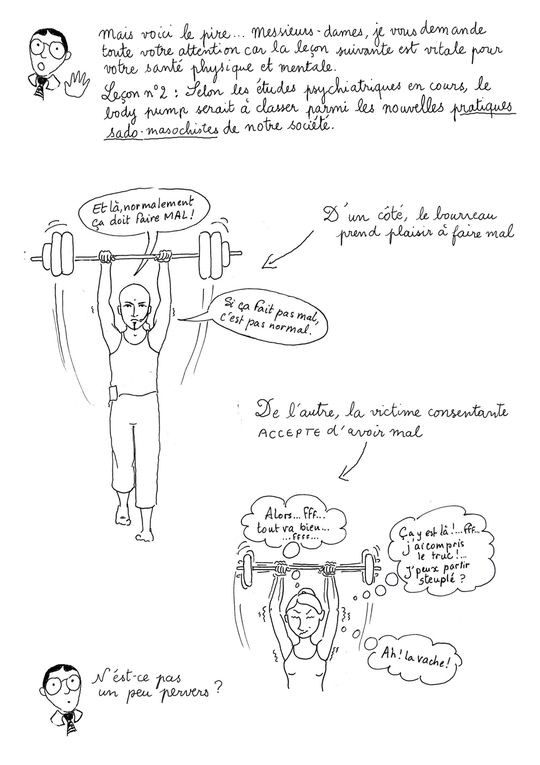 Mais voici le pire... Messieurs-dames, je vous demande
toute votre attention car la leçon suivante est vitale pour
votre santé physique et mentale.
Leçon n°2 : Selon les études psychiatriques en cours, le
body pump serait à classer parmi les nouvelles pratiques
sado-masochistes de notre société.
Et là, normalement
ça doit faire MAL !
D'un côté, le bourreau
prend plaisir à faire mal
Si ça fait pas mal,
c'est pas normal.
De l'autre, la victime consentante
ACCEPTE d'avoir mal
Alors... fff...
tout va bieu...
...ffff...
Ça y est là !...fff...
j'ai compris
le truc !...
J'peux partir
steuplé ?
Ah ! la vache !
N'est-ce pas
un peu pervers ?